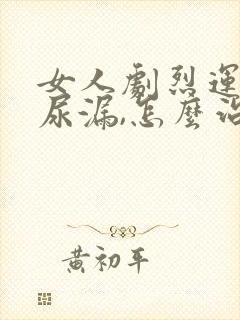 女人劇烈運
尿漏,怎麼治
黃初平